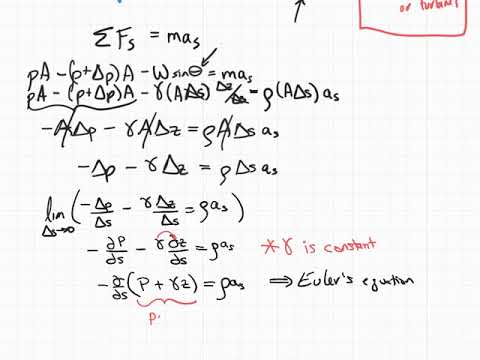 or turbine
ΣFs = mas
pA - (p+Δp)A - W sinΘ = mas
pA - (p+Δp)A - γ(AΔs) Δz/Δs = ρ(AΔs)as
-AΔp - γAΔz = ρAΔs as
-Δp - γΔz = ρΔs as
lim Δs→0 (-Δp/Δs - γΔz/Δs = ρas)
-∂P/∂s - γ∂z/∂s = ρas *γ is constant
-∂/∂s (P + γz) = ρas ⇒ Euler's equation
p.